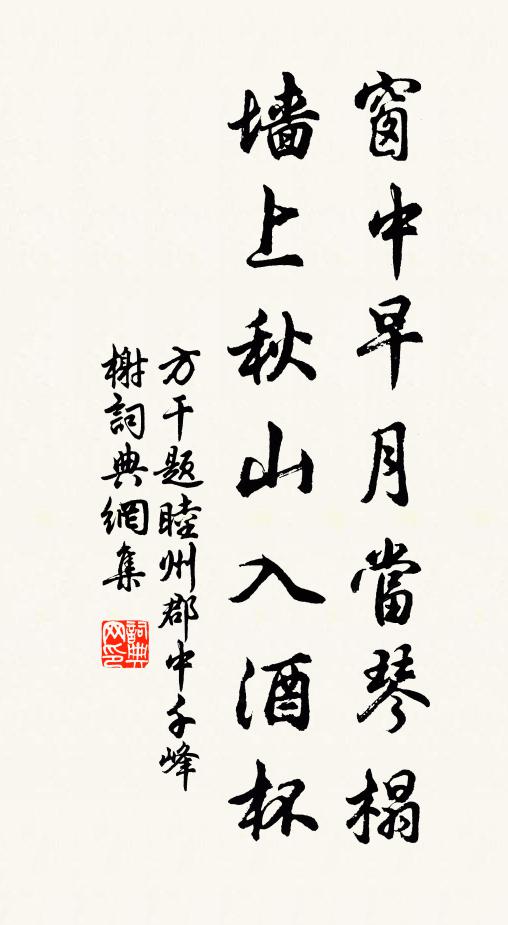 窗中早月當琴榻
墙上秋山入酒杯
方干题睦州郡中千峰
榭詞典網集
詞典网印